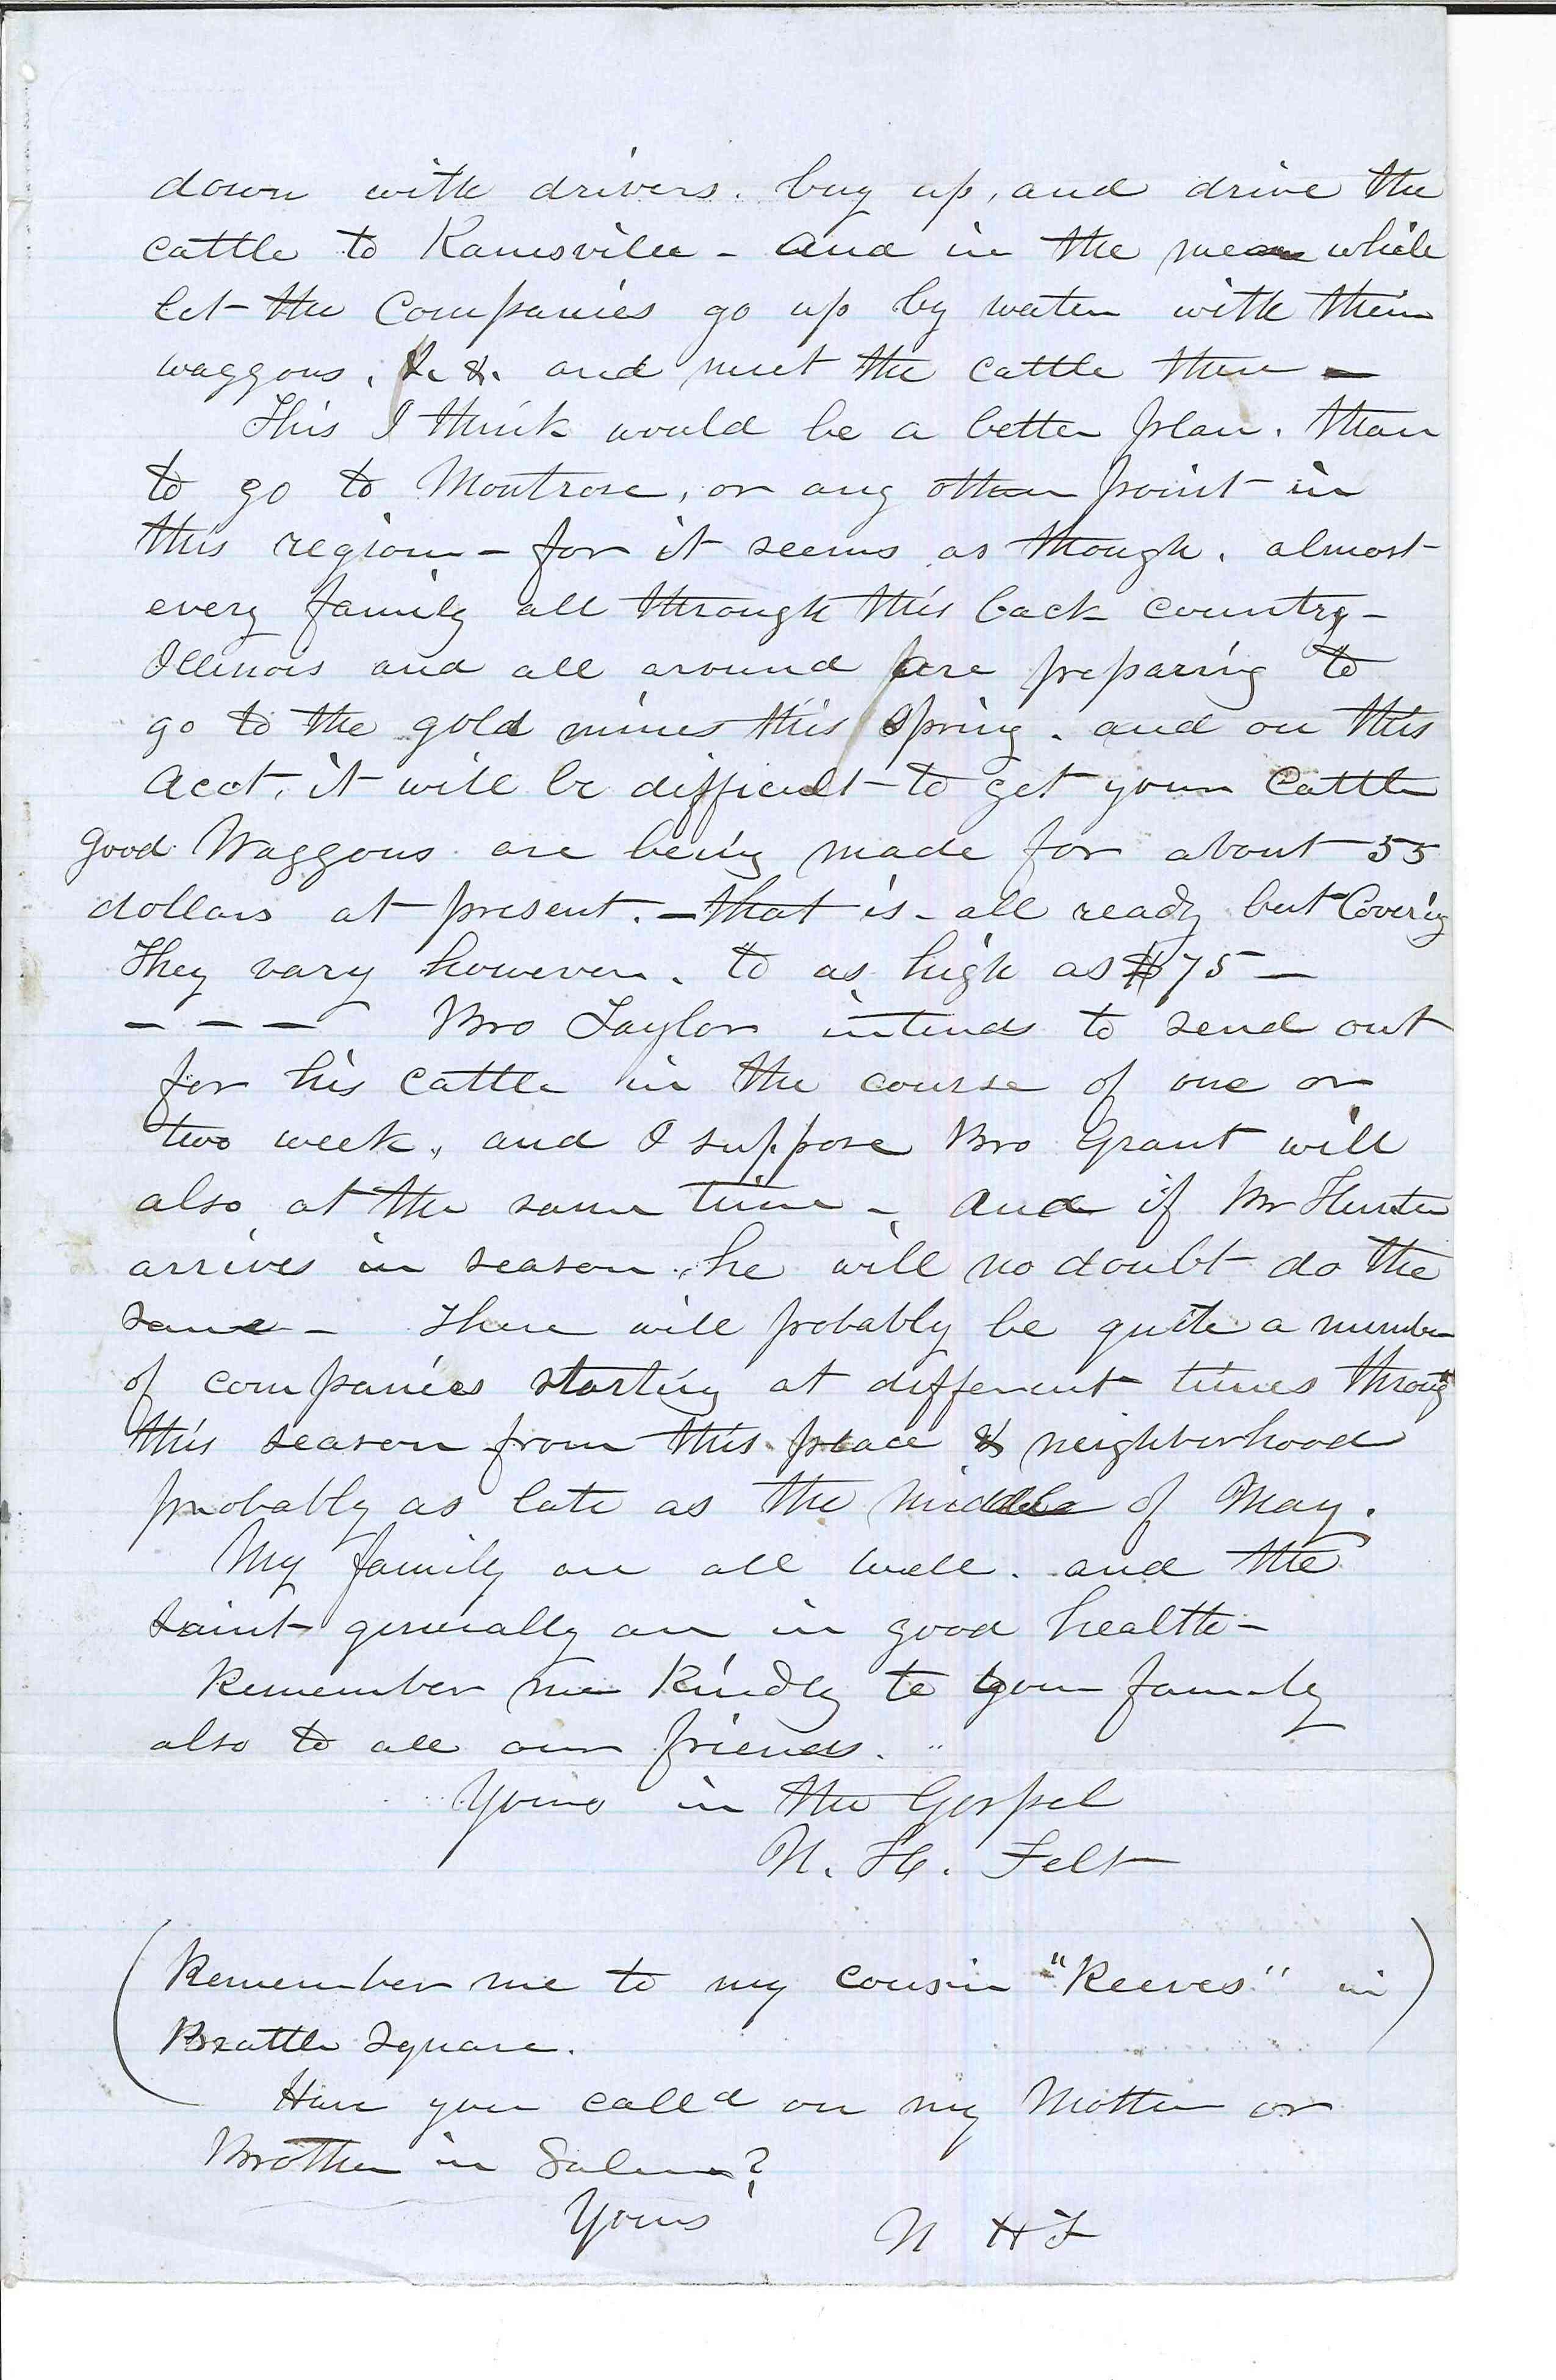 down with drivers. buy up, and drive the
cattle to Kanesville - and in the mean while
let the Companies go up by water with their
waggons, &c &c. and meet the cattle there —
This I think would be a better plan. than
to go to Montrose, or any other point in
this region - for it seems as though, almost
every family all through this back country -
Illinois and all around are preparing to
go to the gold mines this spring. and on this
acct, it will be difficult to get your Cattle
good Waggons are being made for about 55
dollars at present. - that is - all ready but Covering
They vary however. to as high as $75 —
— — — Bro Taylor intends to send out
for his cattle in the course of one or
two week, and I suppose Bro Grant will
also at the same time - and if Mr Hunter
arrives in season, he will no doubt do the
same - There will probably be quite a number
of companies starting at different times throug
this season from this place & neighborhood
probably as late as the middle of May.
My family are all well. and the
saints generally are in good health -
Remember me kindly to your family
also to all our friends.
Yours in the Gospel
N. H. Felt
(Remember me to my cousin "Reeves" in)
Brattle Square.
Have you calld on my Mother or
Brother in Salem?
Yours N H F